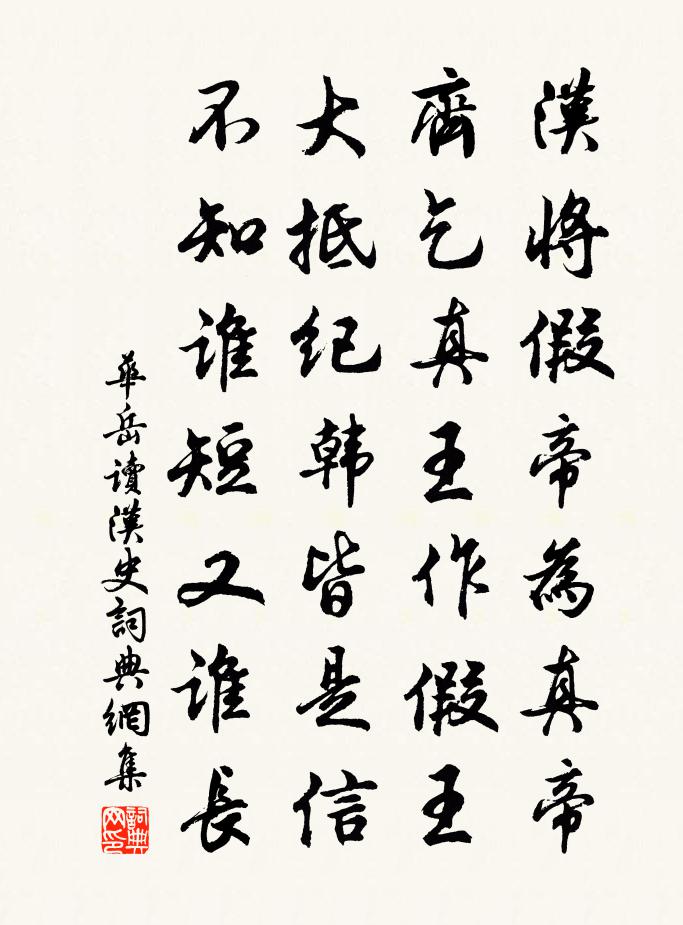 漢將假帝為真帝
齊乞真王作假王
大抵紀韓皆是信
不知誰短又誰長
華岳讀漢史詞典網集
詞典网印